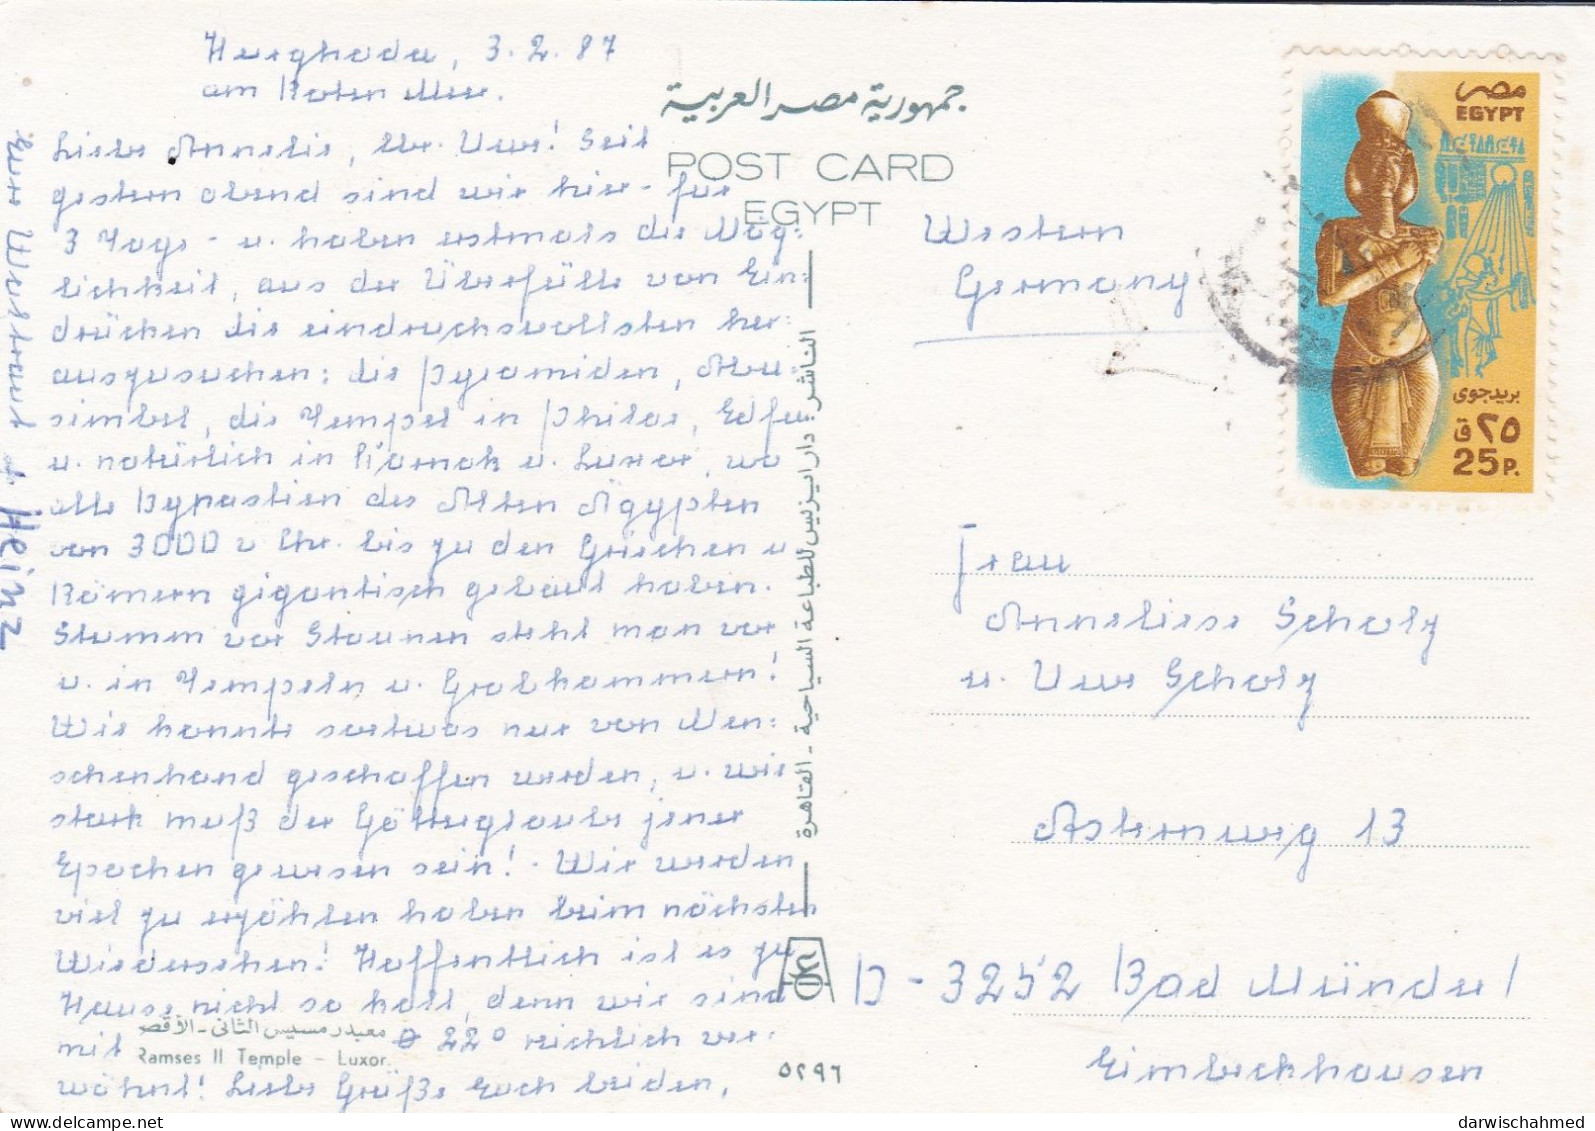 Hurghada, 3.2.87
am Roten Meer.
Liebe Annelie, lbr. Uwe! Seit
gestern abend sind wir hier - für
3 Tage - u. haben erstmals die Mög-
lichkeit, aus der Überfülle von Ein-
drücken die eindrucksvollsten her-
auszusuchen: die Pyramiden, Abu-
simbel, die Tempel in Philae, Edfu
u. natürlich in Karnak u. Luxor, wo
alle Dynastien des Alten Ägypten
von 3000 v Chr. bis zu den Griechen u
Römern gigantisch gebaut haben.
Stumm vor Staunen steht man vor
u. in Tempeln u. Grabkammern!
Wie konnte soetwas nur von Men-
schenhand geschaffen werden, u. wie
stark muß der Götterglaube jener
Epochen gewesen sein! - Wir werden
viel zu erzählen haben beim nächsten
Wiedersehen! Hoffentlich ist es zu
Hause nicht so kalt, denn wir sind
mit ø 22° reichlich ver-
wöhnt! Liebe Grüße Euch beiden,
Eure Waltraut u. Heinz
معبد رمسيس الثاني - الأقصر
Ramses II Temple - Luxor.
٥٢٩٦
جمهورية مصر العربية
POST CARD
EGYPT
الناشر: دار ايزيس للطباعة السياحية - القاهرة
مصر
EGYPT
بريد جوى
٢٥ ق
25 P.
Western
Germany
Frau
Anneliese Scholz
u. Uwe Scholz
Asternweg 13
D - 3252 Bad Münder/
Eimbeckhausen
darwischahmed
delcampe.net